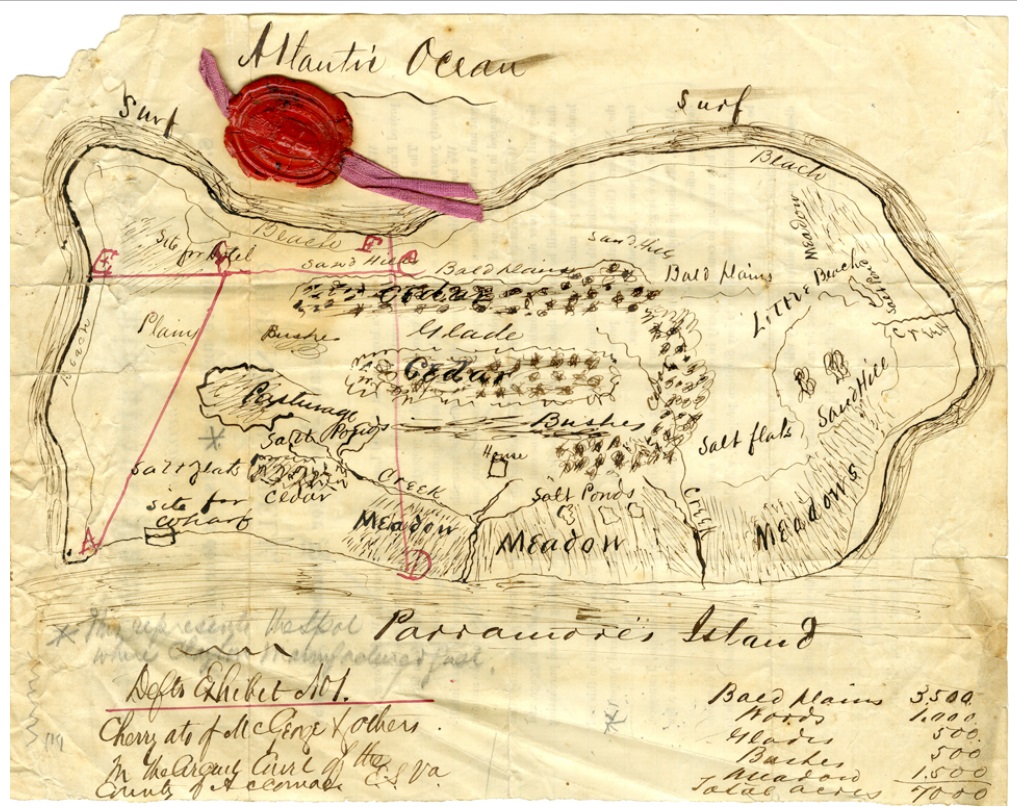 Atlantic Ocean
Surf
Surf
Beach
Meadow
Site for Hotel
Beach
F
Sand Hills
E
G
Sand Hills
C
Bald plains
Bald plains
Little Beach
Salt Pond
Cedar
Plains
Bushes
Glade
Creek
Beach
Cedar
B B
Sand Hill
Pasturage
Bushes
Salt Ponds
Salt flats
House
Salt flats
Cedar
Creek
Salt Ponds
Creek
Site for
wharf
Meadow
Meadow
Meadows
A
D
Parramore's Island
* This represents the spot
where
Defts Exhibit No 1.
Cherry ats of McGeorge & others
In the Circuit Court of the
County of Accomac
E S Va
Bald plains 3,500
Woods 1,000
Glades 500
Bushes 500
Meadow 1,500
Total acres 7000